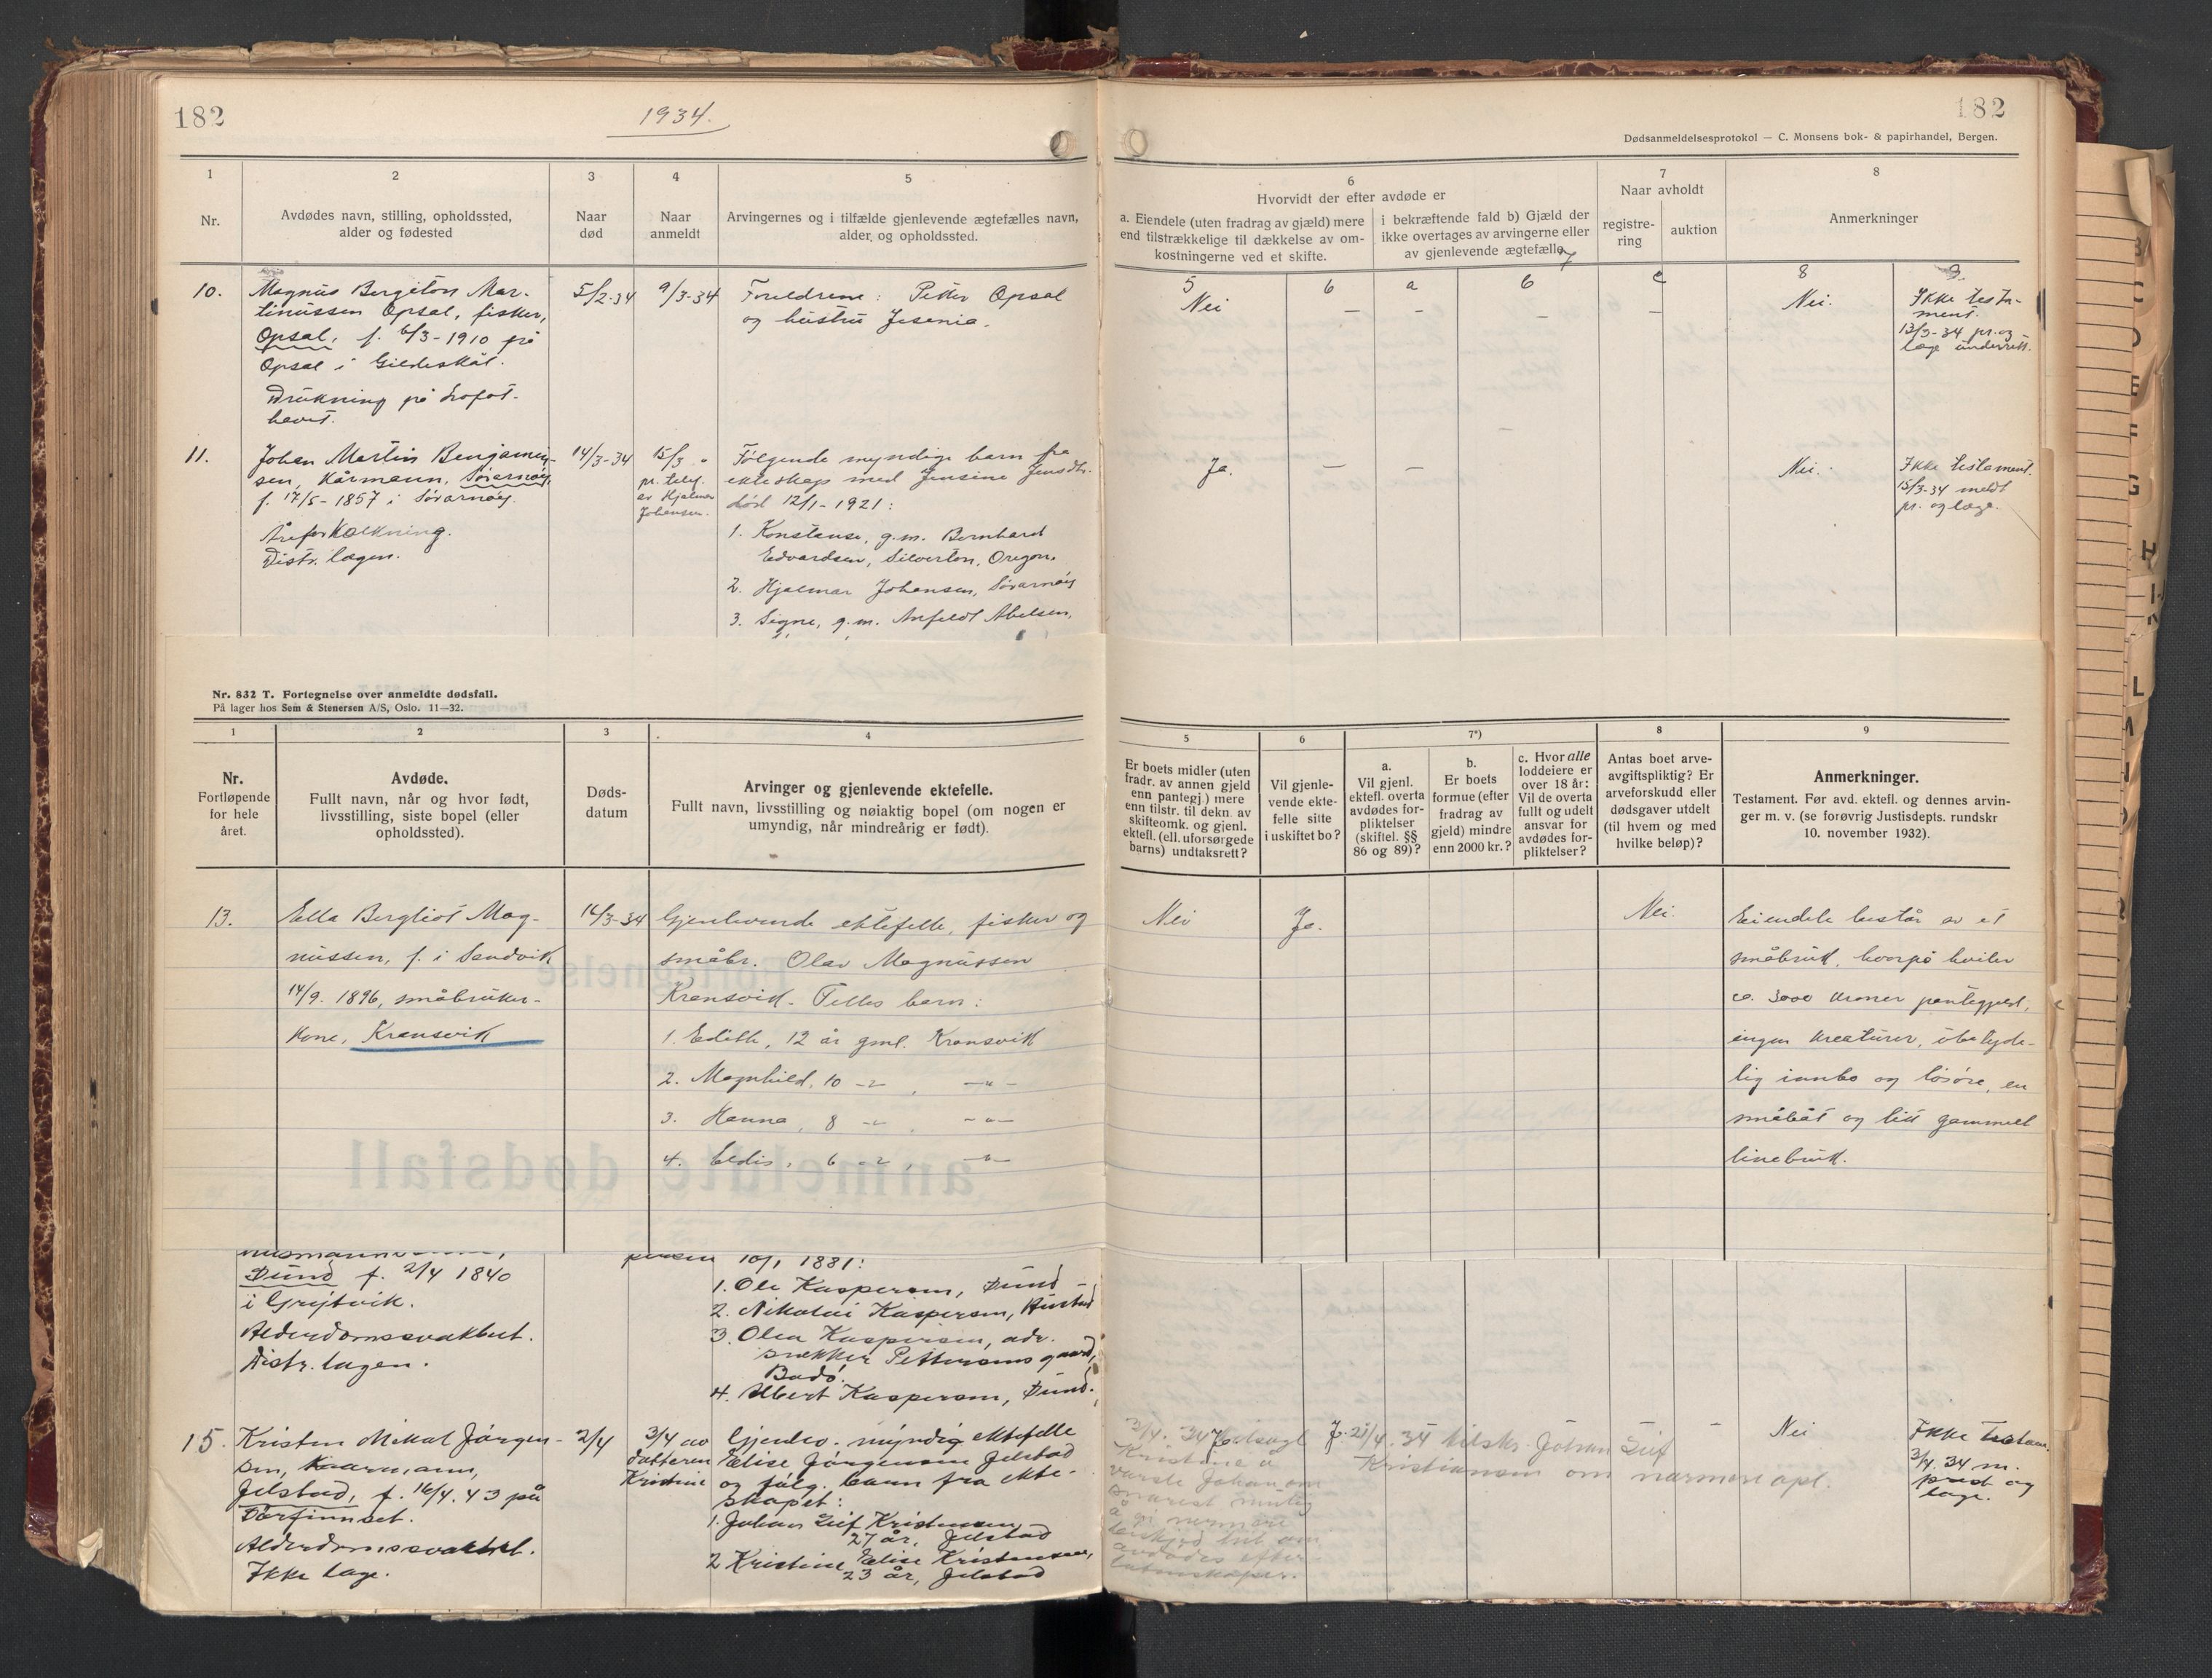 182
1934.
182
Dødsanmeldelsesprotokol — C. Monsens bok- & papirhandel, Bergen.
1
Nr.
2
Avdødes navn, stilling, opholdssted,
alder og fødested
3
Naar
død
4
Naar
anmeldt
5
Arvingernes og i tilfælde gjenlevende ægtefælles navn,
alder og opholdssted.
6
Hvorvidt der efter avdøde er
a. Eiendele (uten fradrag av gjæld) mere
end tilstrækkelige til dækkelse av om-
kostningerne ved et skifte.
i bekræftende fald b) Gjæld der
ikke overtages av arvingerne eller
av gjenlevende ægtefælle
7
Naar avholdt
registre-
ring
auktion
8
Anmerkninger
5
6
a
7
b
c
8
9.
10.
Magnus Bergiton Mar-
tinussen Opsal, fisker,
Opsal, f. 6/3-1910 på
Opsal i Gildeskål.
Drukning på Lofot-
havet.
5/2-34
9/3-34
Foreldrene: Petter Opsal
og hustru Jesenia.
Nei
—
—
—
—
Nei.
Ikke testa-
ment.
13/3-34 pr. og
læge underrett.
11.
Johan Martin Benjamin-
sen, kårmann, Sørarnøy,
f. 17/5-1857 i Sørarnøy.
Åreforkalkning.
Distr. lægen.
14/3-34
15/3 "
pr. telef.
av Hjalmar
Johansen.
Følgende myndige barn fra
ekteskap med Jensine Jensdtr.
død 12/1-1921:
1. Konstanse, g.m. Bernhard
Edvardsen, Silverton, Oregon.
2. Hjalmar Johansen, Sørarnøy
3. Signe, g.m. Anfeldt Abelsen,
Ja.
—
—
Nei.
Ikke testament.
15/3-34 meldt
pr. og læge.
Nr. 832 T. Fortegnelse over anmeldte dødsfall.
På lager hos Sem & Stenersen A/S, Oslo. 11—32.
1
Nr.
Fortløpende
for hele
året.
2
Avdøde.
Fullt navn, når og hvor født,
livsstilling, siste bopel (eller
opholdssted).
3
Døds-
datum
4
Arvinger og gjenlevende ektefelle.
Fullt navn, livsstilling og nøiaktig bopel (om nogen er
umyndig, når mindreårig er født).
5
Er boets midler (uten
fradr. av annen gjeld
enn pantegj.) mere
enn tilstr. til dekn. av
skifteomk. og gjenl.
ektefl. (ell. uforsørgede
barns) undtaksrett?
6
Vil gjenle-
vende ekte-
felle sitte
i uskiftet bo?
7*)
a.
Vil gjenl.
ektefl. overta
avdødes for-
pliktelser
(skiftel. §§
86 og 89)?
b.
Er boets
formue (efter
fradrag av
gjeld) mindre
enn 2000 kr.?
c. Hvor alle
loddeiere er
over 18 år:
Vil de overta
fullt og udelt
ansvar for
avdødes for-
pliktelser?
8
Antas boet arve-
avgiftspliktig? Er
arveforskudd eller
dødsgaver utdelt
(til hvem og med
hvilke beløp)?
9
Anmerkninger.
Testament. Før avd. ektefl. og dennes arvin-
ger m. v. (se forøvrig Justisdepts. rundskr
10. november 1932).
13.
Ella Bergliot Mag-
nussen, f. i Sandvik
14/9. 1896, småbruker-
kone, Kransvik
14/3-34
Gjenlevende ektefelle, fisker og
småbr. Olav Magnussen
Kransvik. Felles barn:
1. Edith, 12 år gml. Kransvik
2. Magnhild, 10 -"- , -"-
3. Hanna, 8 -"- , -"-
4. Eldis, 6 -"- , -"-
Nei
Ja.
Nei.
Eiendele består av et
småbruk, hvorpå hviler
ca. 3000 kroner pantegjeld,
ingen kreaturer, ubetyde-
lig innbo og løsøre, en
småbåt og litt gammelt
linebruk.
Sund f. 2/4 1840
i Grytvik.
Alderdomssvakhet.
Distr. lægen.
10/1 1881:
1. Ole Kaspersen, Sund
2. Nikolai Kaspersen, Hustad
3. Olea Kaspersen, adr.
snekker Pettersens gaard,
Bodø.
4. Albert Kaspersen, Sund.
15.
Kristen Mikal Jørgen-
sen, kaarmann,
Jelstad, f. 16/4. 43 på
Torfinnset.
Alderdomssvakhet.
Ikke læge.
2/4
3/4 av
datteren
Kristine
Gjenlev. myndig ektefelle
Elise Jørgensen Jelstad
og følg. barn fra ekte-
skapet:
1. Johan Leif Kristensen
27 år, Jelstad
2 Kristine Elise Kristensen,
23 år, Jelstad
3/4. 34 tilsagt
Kristine å
varsle Johan om
snarest mulig
å gi nærmere
beskjed hit om
avdødes efter-
latenskaper.
21/4. 34 tilskr. Johan Leif
Kristiansen om nærmere opl.
—
Nei
Ikke testam.
3/4. 34 m.
prest og
læge.